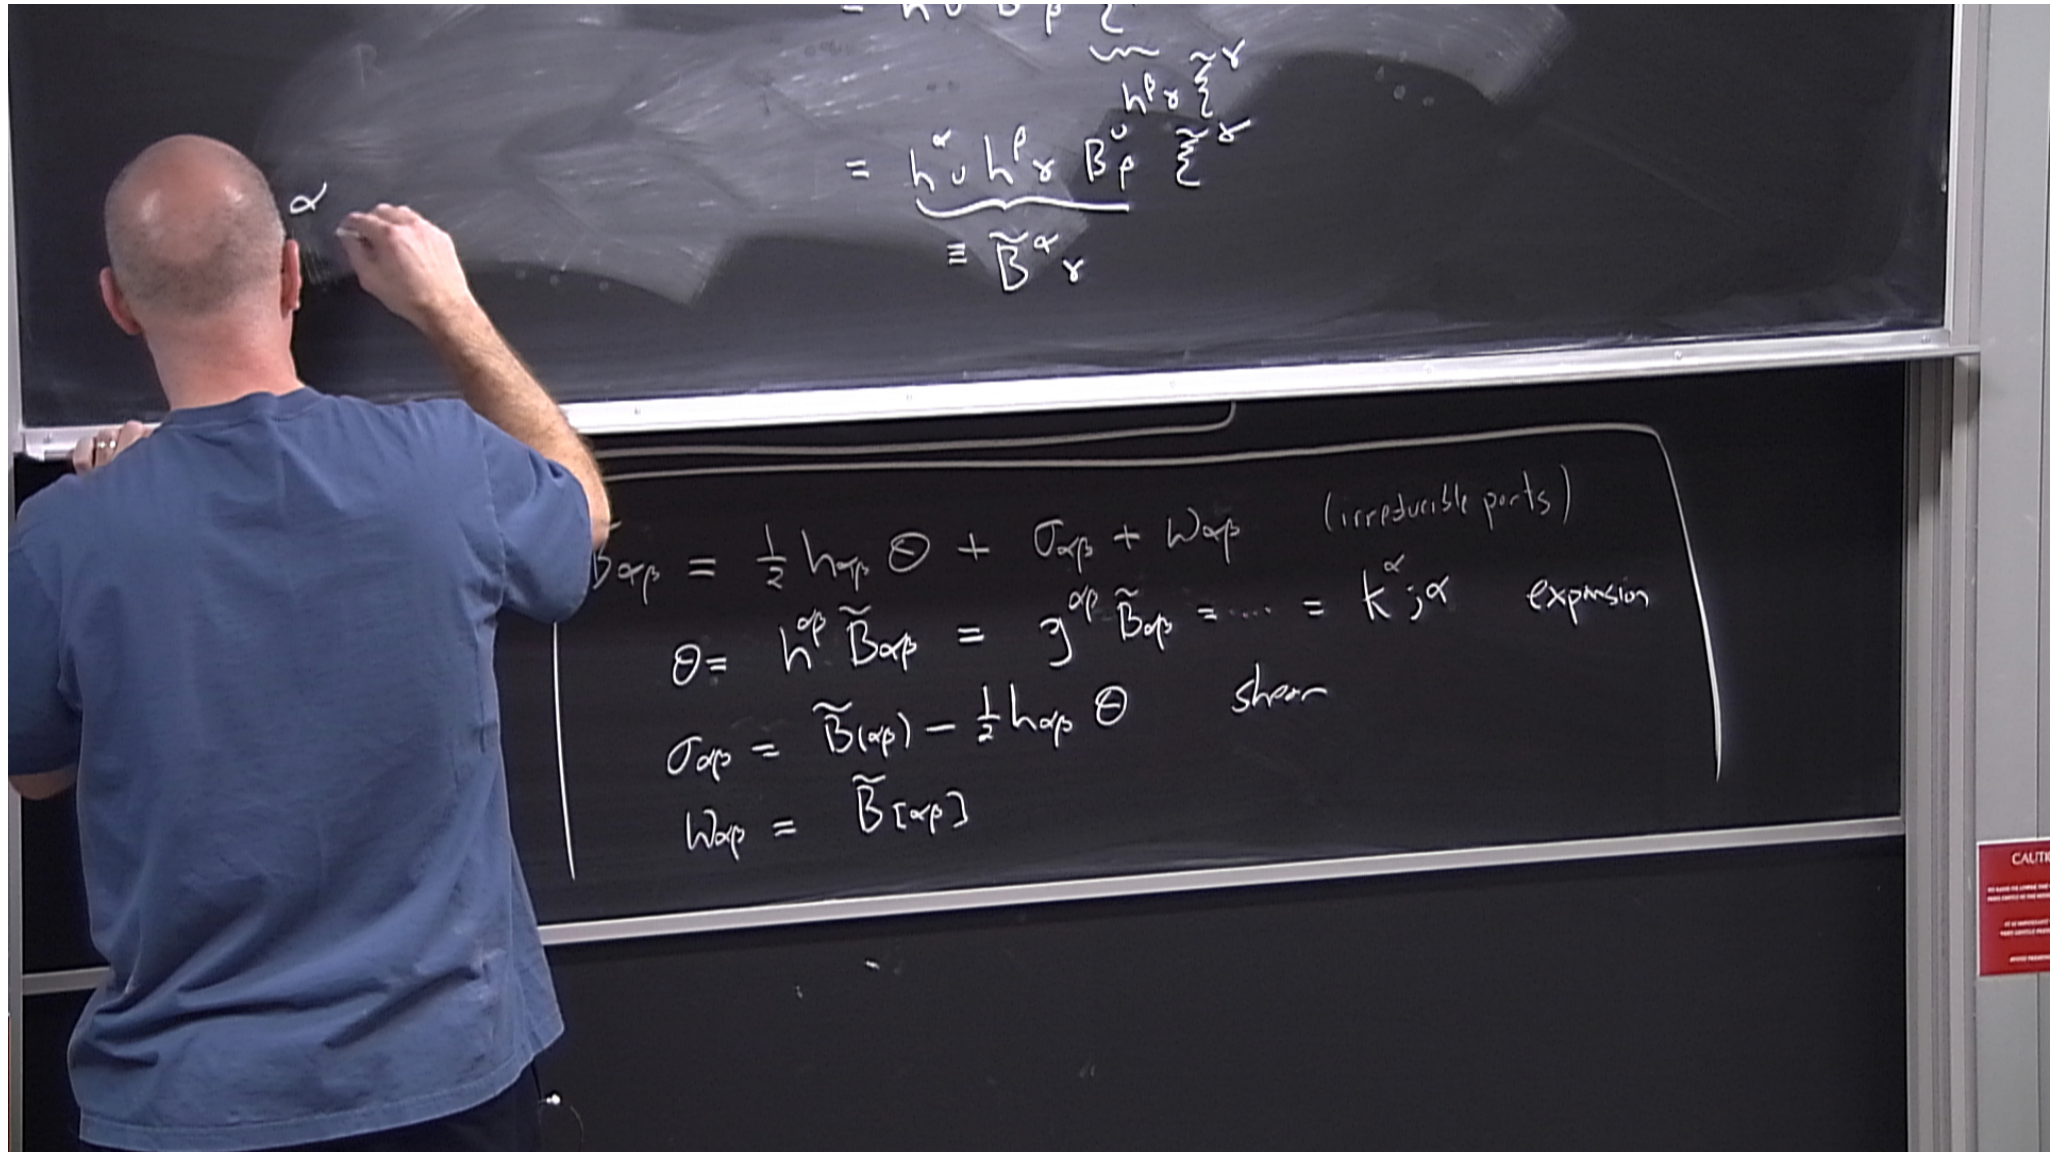 = h^α_ν B^ν_β ξ
h^β_γ ξ̃^γ
= h^α_ν h^β_γ B^ν_β ξ̃^γ
≡ B̃^α_γ
α
B̃_αβ = 1/2 h_αβ Θ + σ_αβ + ω_αβ (irreducible parts)
Θ = h^αβ B̃_αβ = g^αβ B̃_αβ = .... = k^α_;α expansion
σ_αβ = B̃_(αβ) - 1/2 h_αβ Θ shear
ω_αβ = B̃_[αβ]
CAUTI